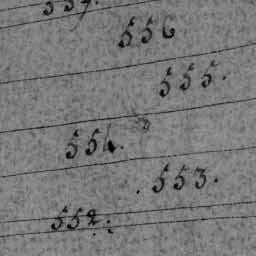 557.
556
555.
554.
553.
552.